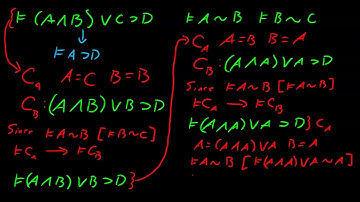 ⊧ (A∧B) ∨ C ⊃ D
⊧ A ⊃ D
C_A A = C B = B
C_B : (A∧B) ∨ B ⊃ D
Since ⊧ A ~ B [⊧ B ~ C]
⊧ C_A → ⊧ C_B
⊧ (A∧B) ∨ B ⊃ D }
⊧ A ~ B ⊧ B ~ C
C_A A = B B = A
C_B : (A∧A) ∨ A ⊃ D
Since ⊧ A ~ B [⊧ A ~ B]
⊧ C_A → ⊧ C_B
⊧ (A∧A) ∨ A ⊃ D } C_A
A = (A∧A) ∨ A B = A
⊧ A ~ B [⊧ (A∧A) ∨ A ~ A]